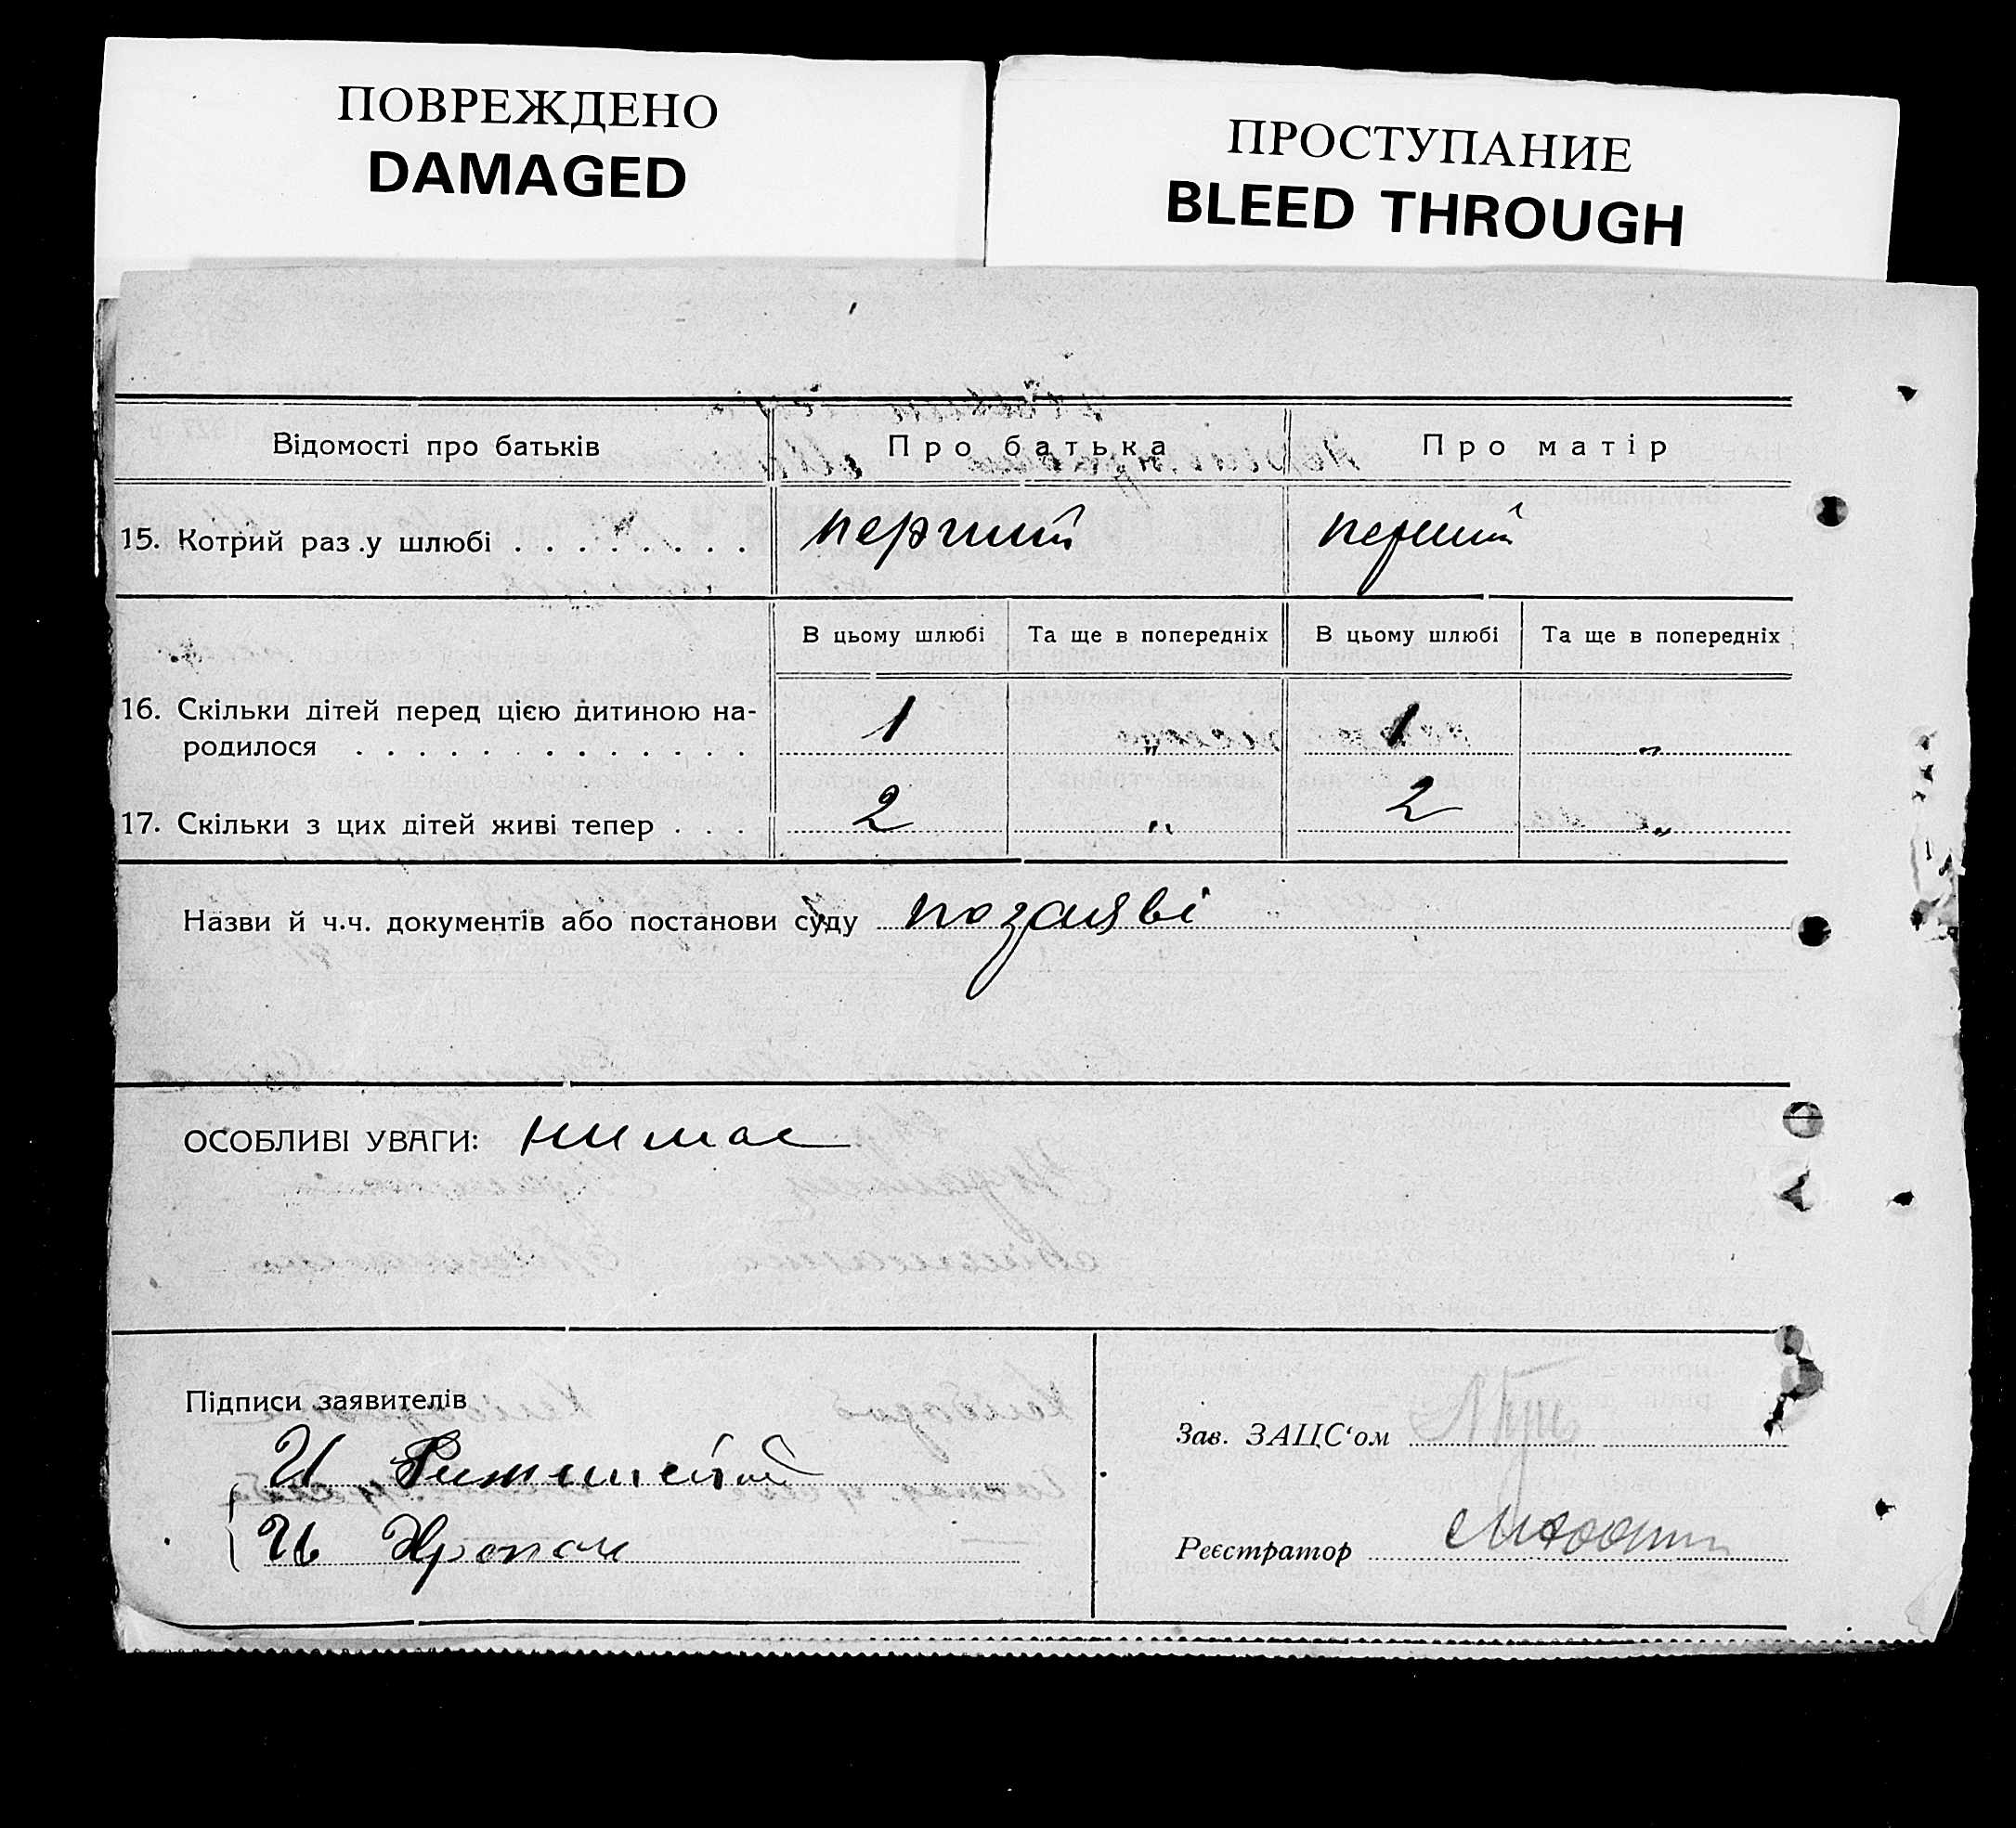 ПОВРЕЖДЕНО
DAMAGED
ПРОСТУПАНИЕ
BLEED THROUGH
Відомості про батьків Про батька Про матір
15. Котрий раз у шлюбі . . . . . . . . перший перший
В цьому шлюбі Та ще в попередніх В цьому шлюбі Та ще в попередніх
16. Скільки дітей перед цією дитиною на-
родилося . . . . . . . . . . . . . 1 „ 1 „
17. Скільки з цих дітей живі тепер . . . 2 „ 2 „
Назви й ч.ч. документів або постанови суду позаяві
ОСОБЛИВІ УВАГИ: нимае
Підписи заявителів
И
И
Зав. ЗАЦС‘ом
Реєстратор